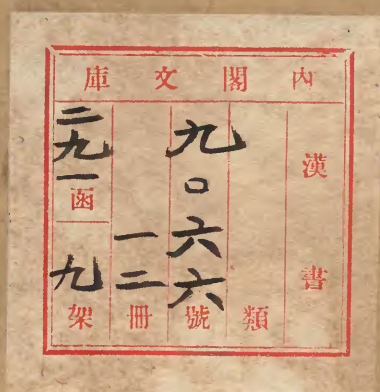 內閣文庫
漢書
類
九〇六六號
一二冊
二九一函
九架